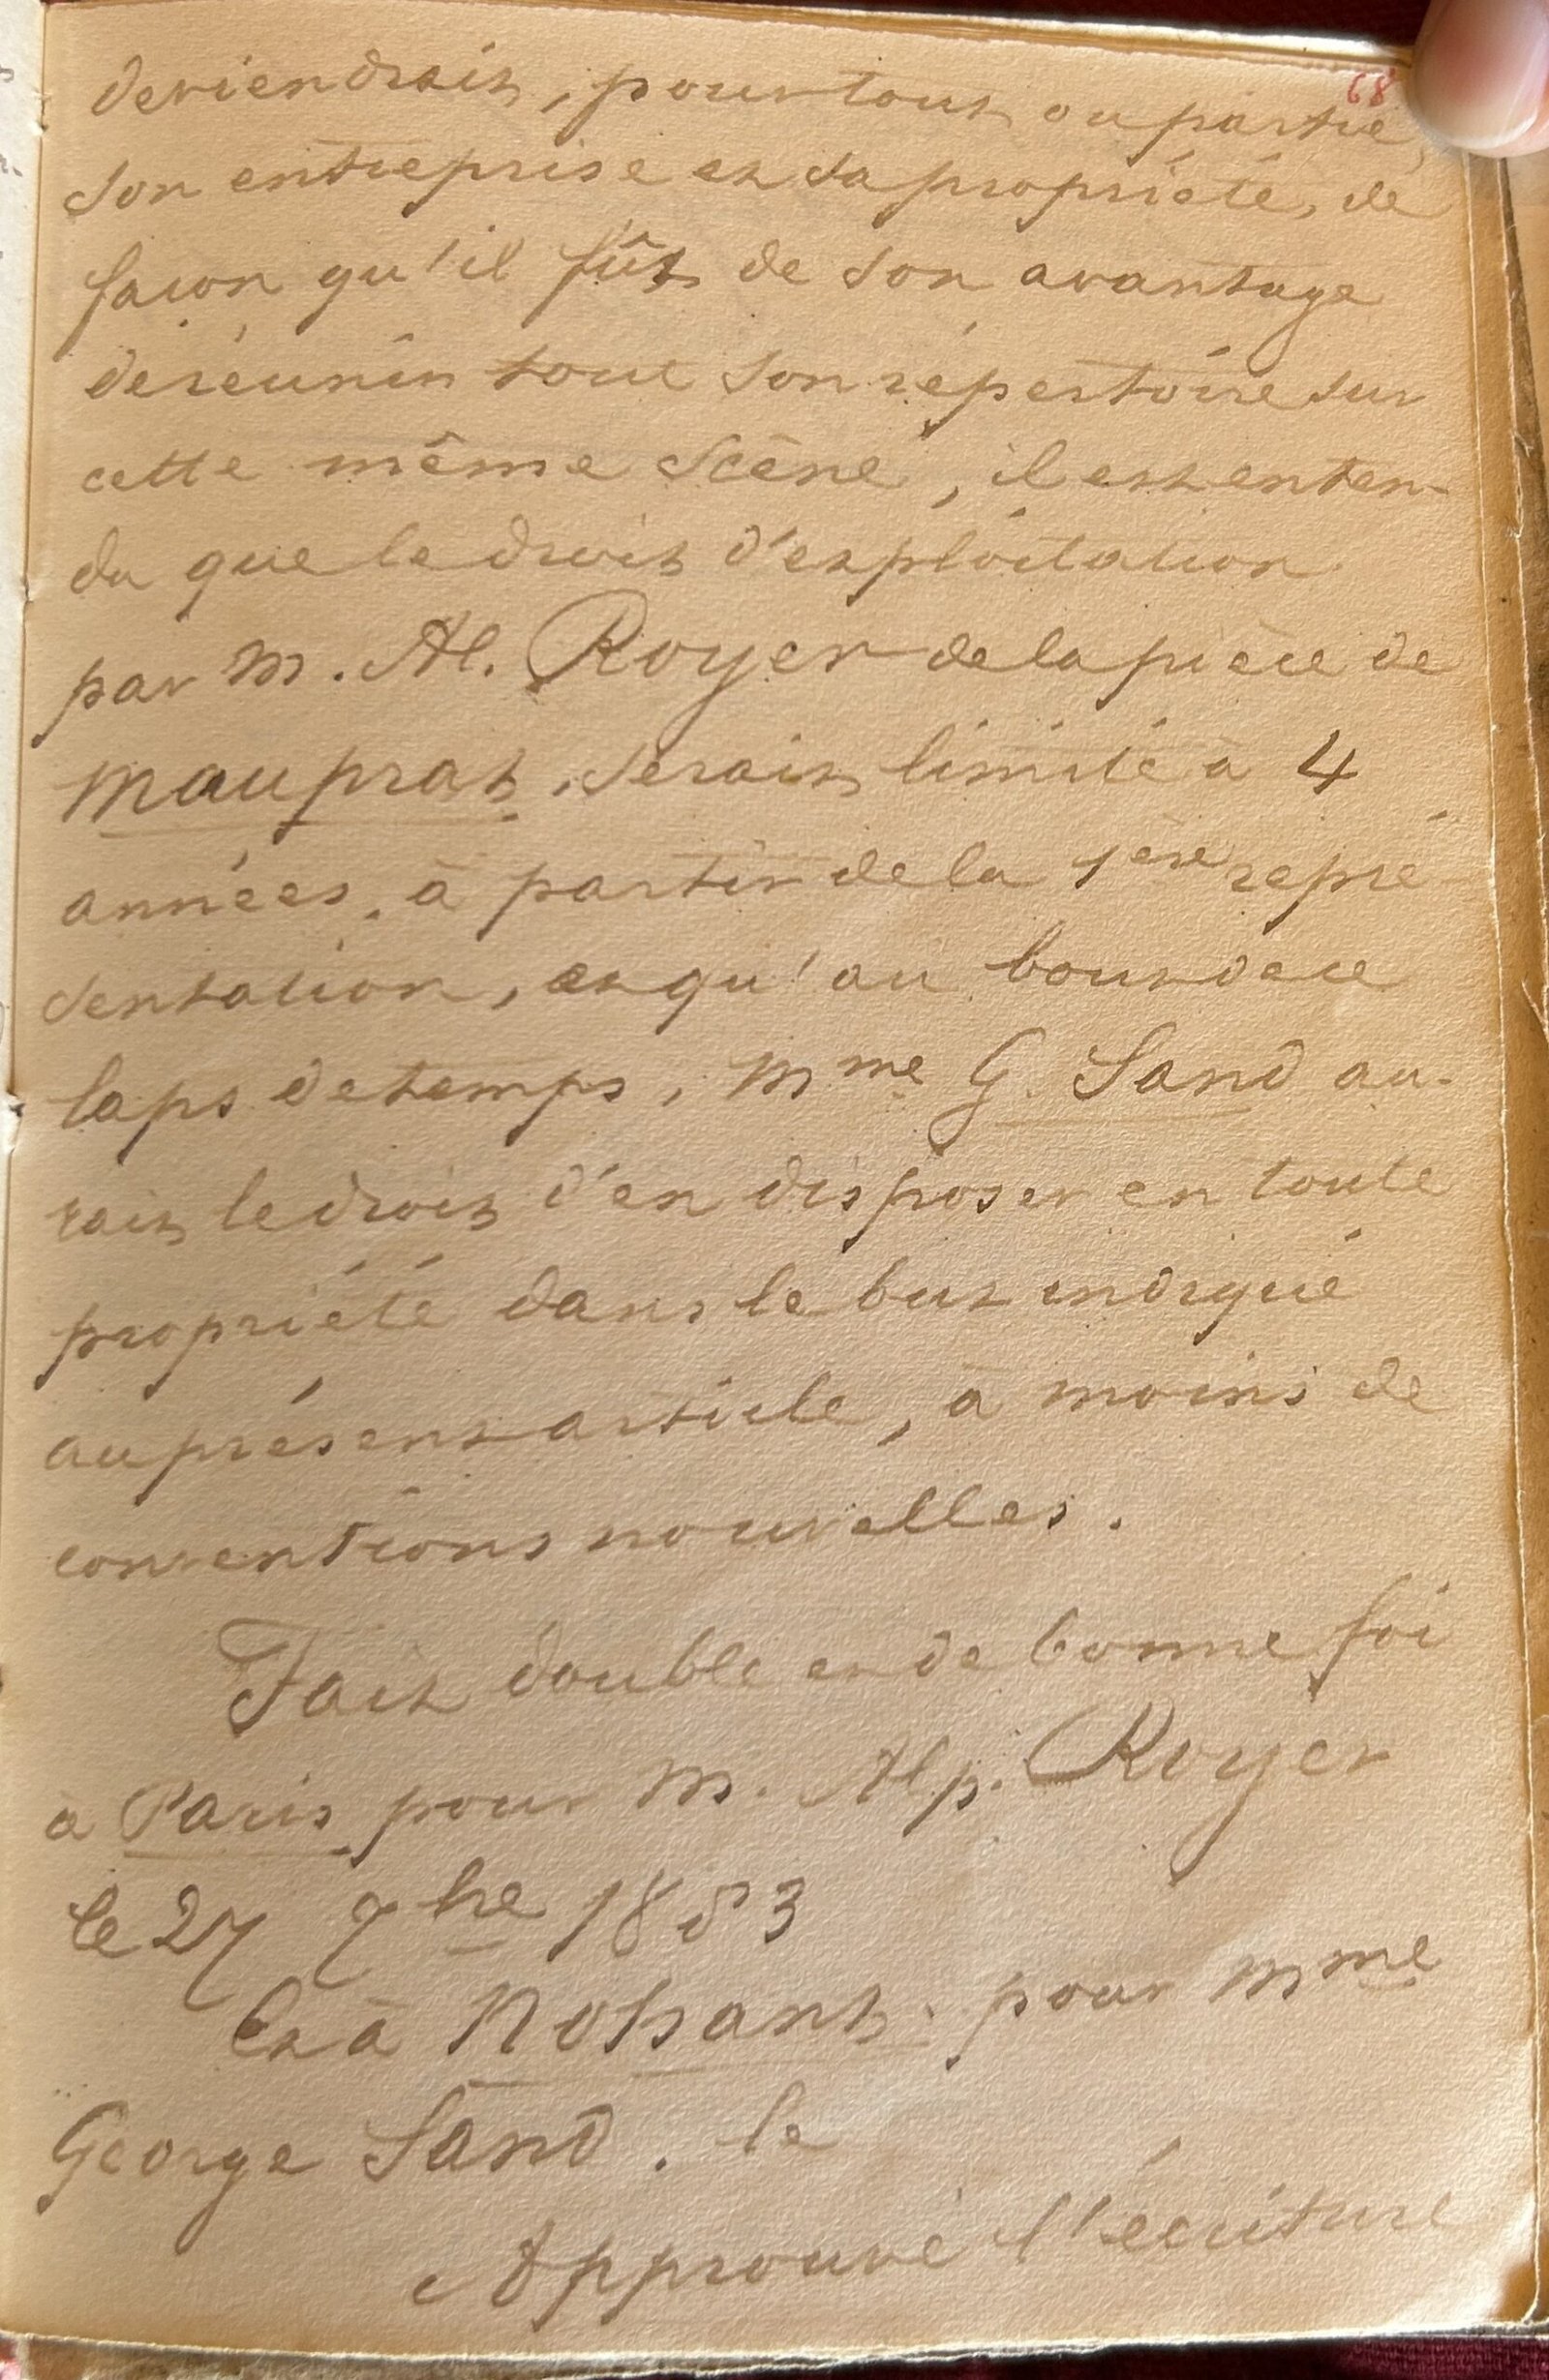 68
deviendrait, pour tout ou partie,
son entreprise et sa propriété, de
façon qu'il fût de son avantage
de réunir tout son répertoire sur
cette même scène, il est enten-
du que le droit d'exploitation
par M. Al. Royer de la pièce de
Mauprat, serait limité à 4
années, à partir de la 1ère repré-
sentation, et qu'au bout de ce
laps de temps, Mme G. Sand au-
rait le droit d'en disposer en toute
propriété dans le but indiqué
au présent article, à moins de
conventions nouvelles.
Fait double et de bonne foi
à Paris pour M. Alp. Royer
le 27 7bre 1853
Et à Nohant. pour Mme
George Sand. le
Approuvé l'écriture